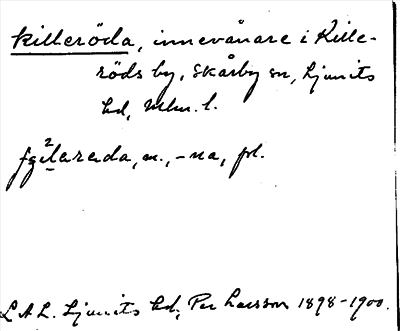 killeröda, innevånare i Kille-
röds by, Skårby sn, Ljunits
hd, Mlm. l.
-na, pl.
L A L. Ljunits hd, Per Larsson 1898-1900.